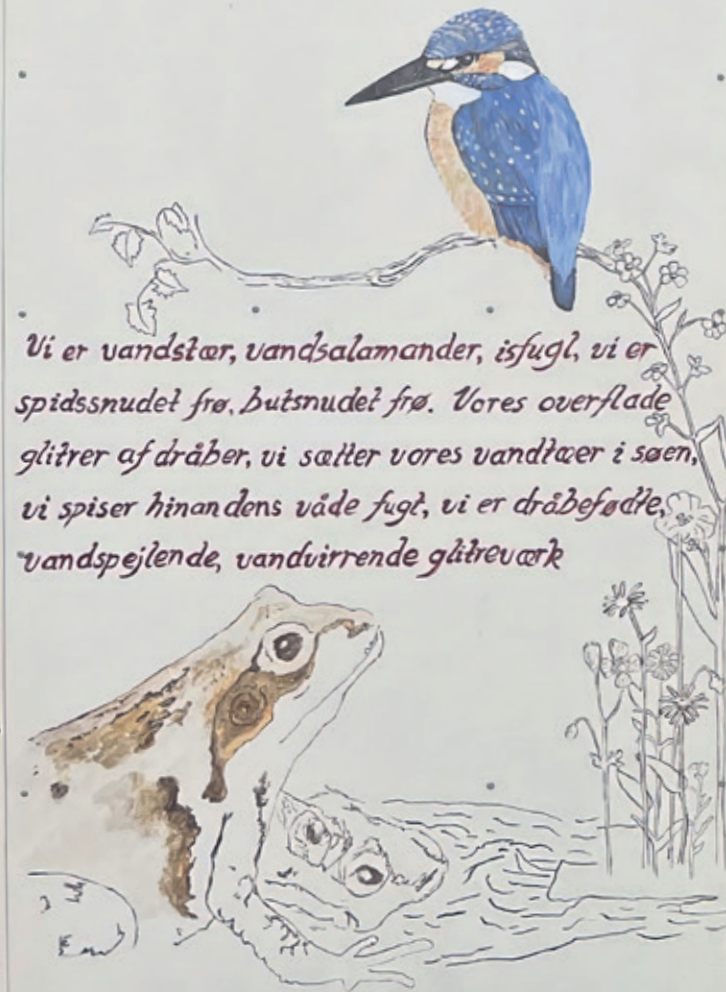 Vi er vandstær, vandsalamander, isfugl, vi er
spidssnudet frø, butsnudet frø. Vores overflade
glitrer af dråber, vi sætter vores vandtæer i søen,
vi spiser hinandens våde fugt, vi er dråbefødte,
vandspejlende, vandvirrende glitreværk